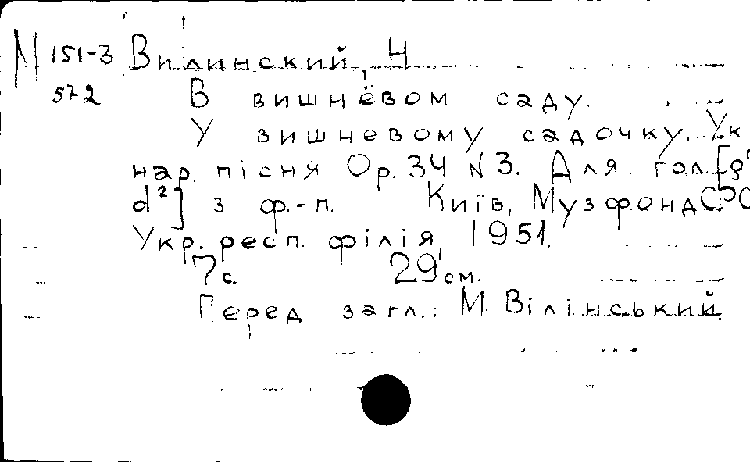 М 151-3 Вилинский, Н
572 В вишнёвом саду.
У вишневому садочку. Ук
нар. пісня Op. 34 N 3. Для гол. [g'
d²] з ф.-п. Київ, Музфонд СРС
Укр. респ. філія, 1951.
7 с. 29 см.
Перед загл.: М. Вілінський